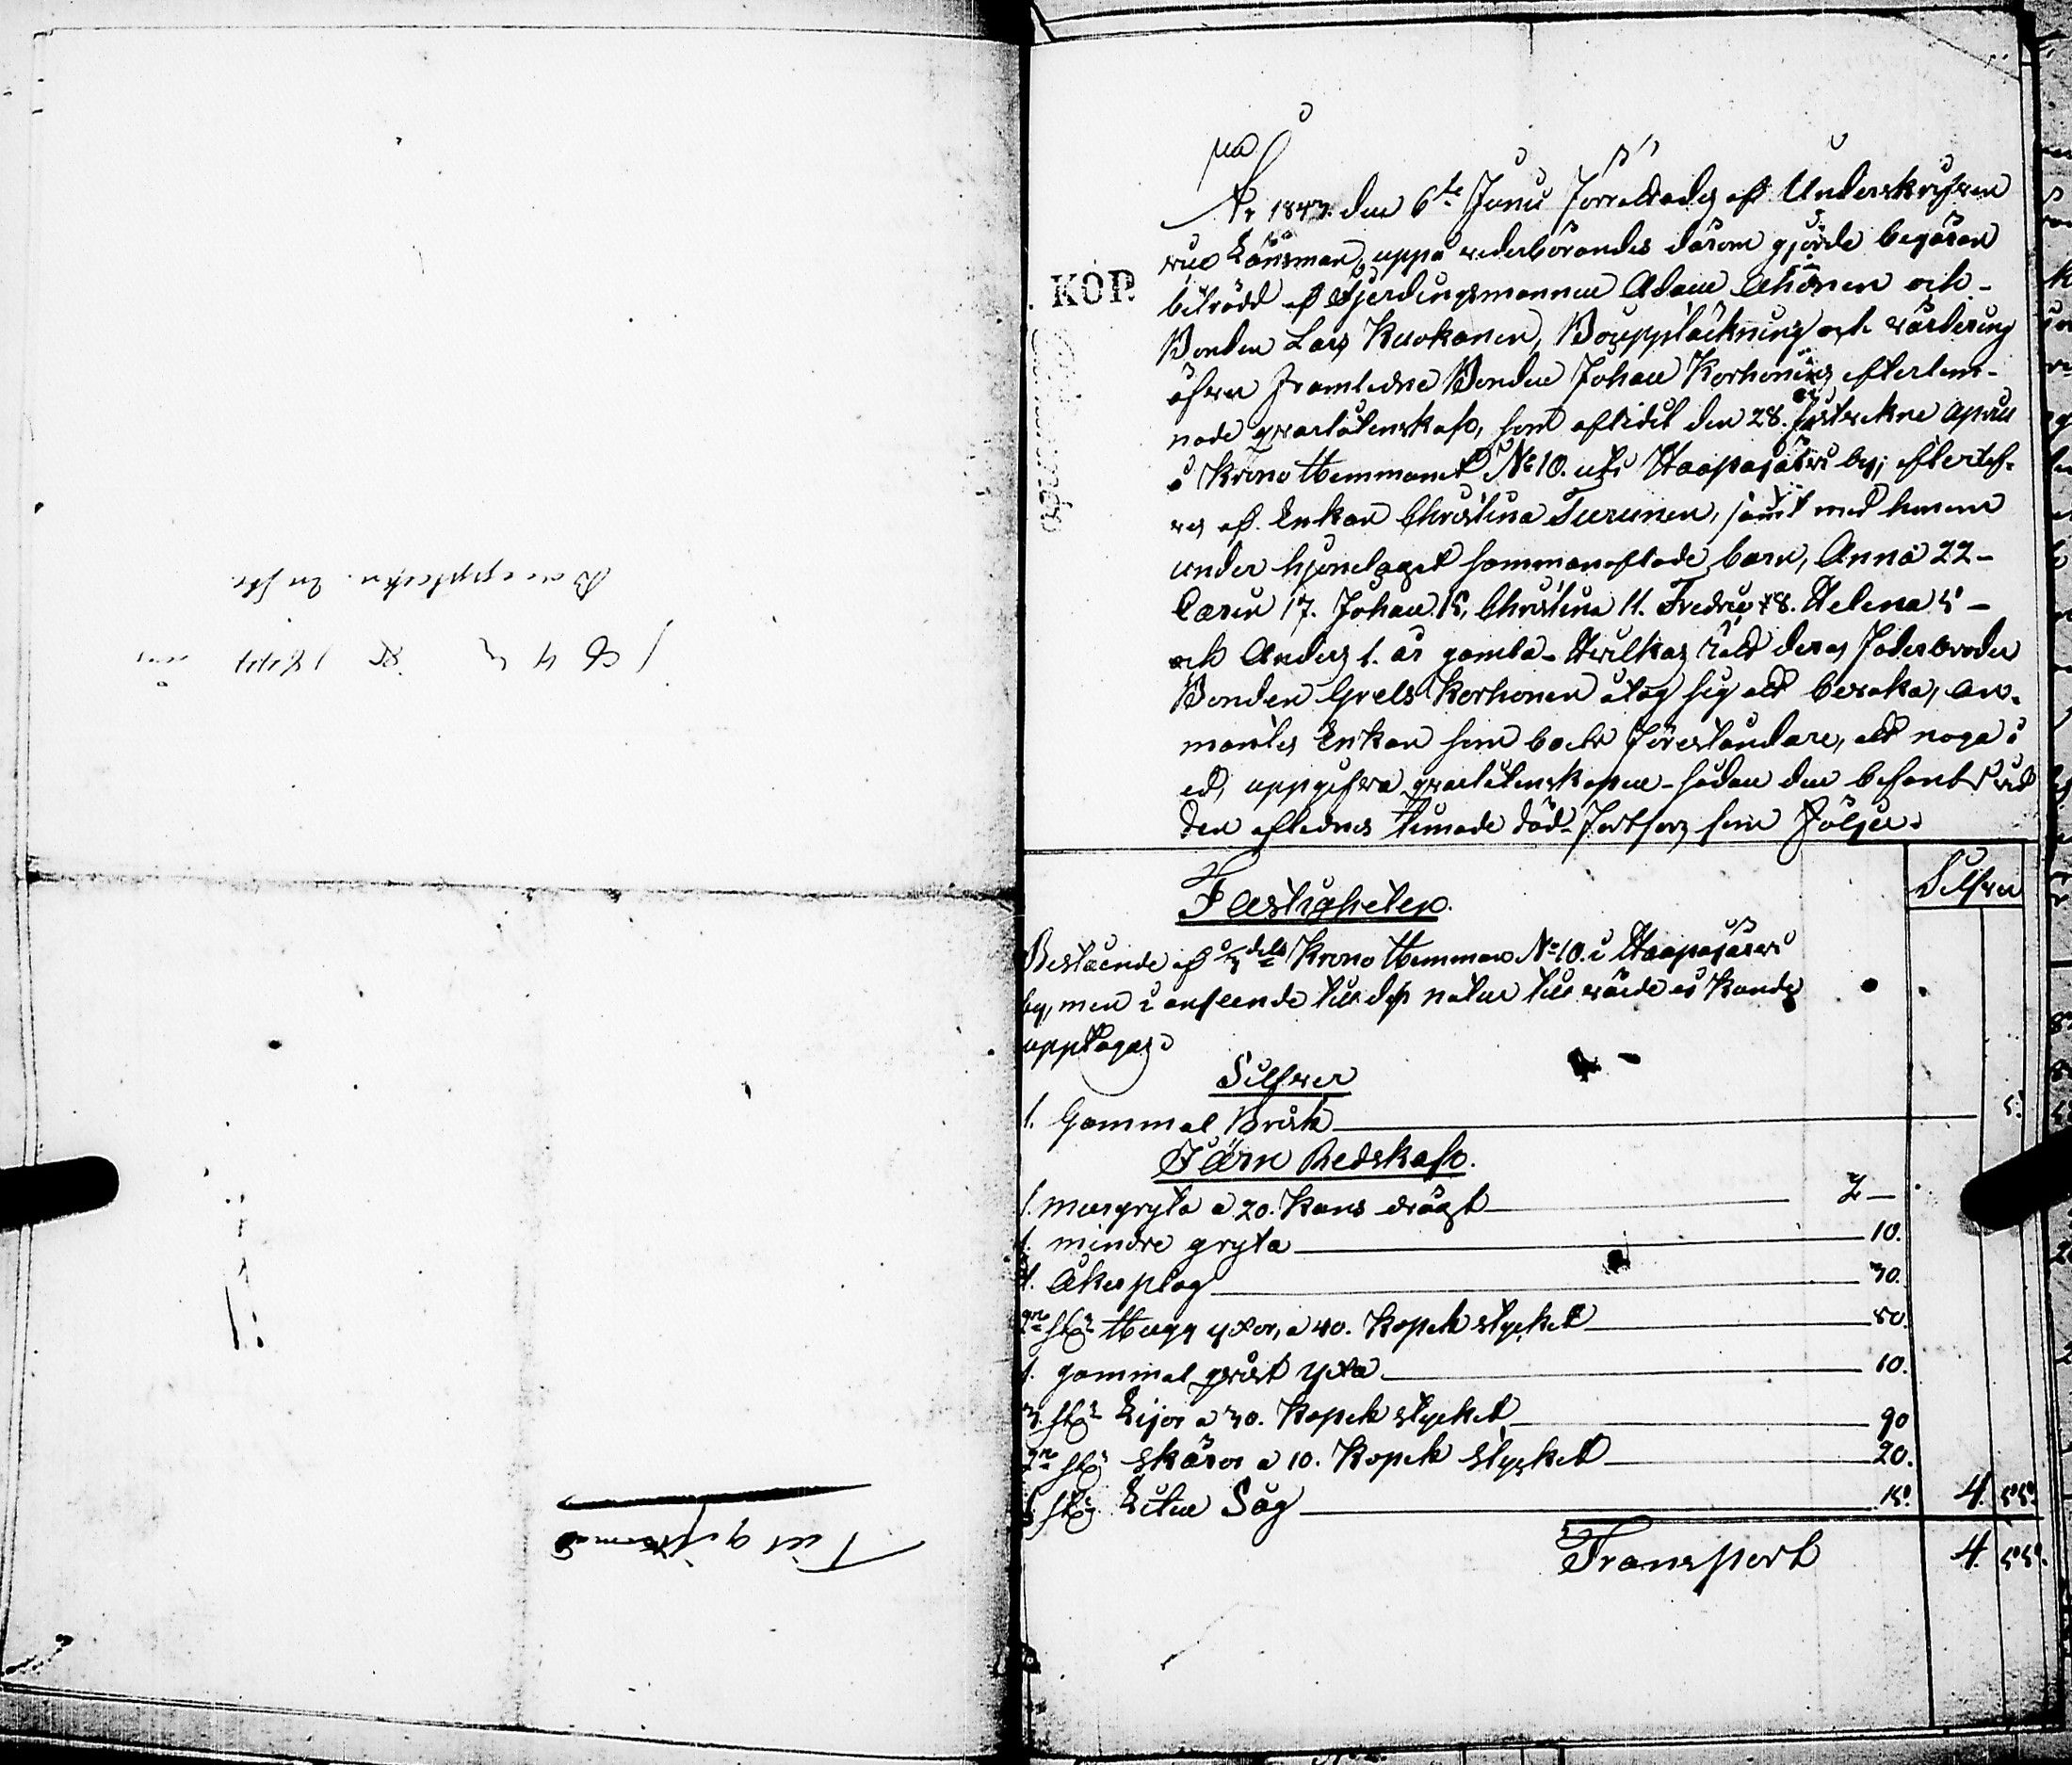 År 1843. den 6te Junii förrättades af Underskrifven
Länsman, uppå vederbörandes därom gjorde begäran
biträdd af Fjerdingsmannen Adam Ahonen och
Bonden Lars Kuokanen, Bouppteckning och värdering
öfver framledne Bonden Johan Korhonens efterlem-
nade qvarlåtenskap, som aflidit den 28. sistvekne April
å Krono Hemmanet No 10. uti Haapajärvi by; efterlef-
ves af Enkan Christina Turunen, samt med henne
under hjonelaget sammanaflade barn, Anna 22
Carin 17. Johan 15, Christina 11. Fredric 8. Helena 5
och Anders 1. år gamla. Hvilkas rätt deras Faderbroder
Bonden Grels Korhonen åtog sig att bevaka, an-
mantes Enkan som boets föreståndare, att noga å
ed, uppgifva qvarlåtenskapen sådan den befants vid
den aflednes timade död. Fortfors som följer.
Silfver
Fastigheten
Bestående af dels Krono Hemman No 10. i Haapajärvi
by, men i anseende till dess natur till värde ej kunde
upptagas.
Silfver
1. Gammal Brisk 5.
Järn Redskap.
1. murgryta a 20. Kans drägt 2 —
1. mindre gryta 10.
1. Åkerplog 30.
2ne st. Hugg yxor, a 40. Kopek stycket 80.
1. gammal yxa 10.
3. st. Lijor a 30. Kopek stycket 90
2ne st. skäror a 10. Kopek stycket 20.
1 st. Liten Såg 15. 4. 55.
Transport 4. 55.
KOP.
Bouppteckn.